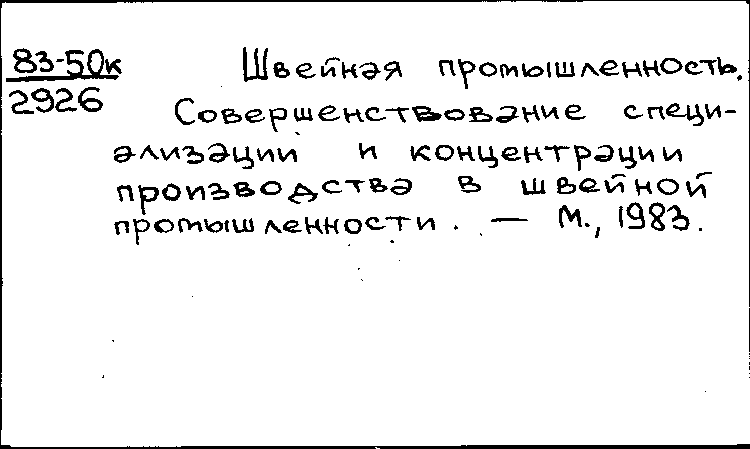 83-50к Швейная промышленность.
2926 Совершенствование специ-
ализации и концентрации
производства в швейной
промышленности. — М., 1983.